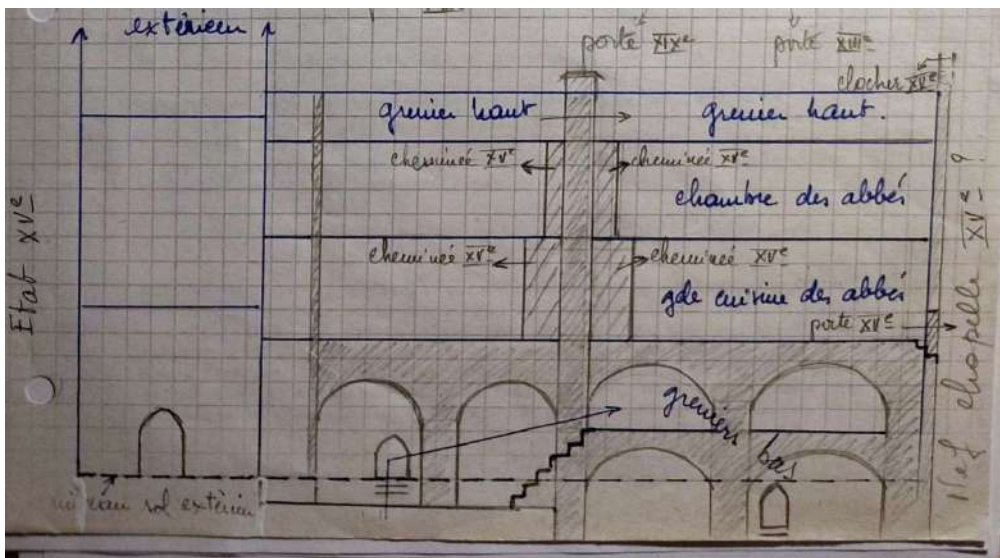 extérieur
porte XIXe
porte XIIIe
clocher XVe
grenier haut
grenier haut.
cheminée XVe
cheminée XVe
chambre des abbés
cheminée XVe
cheminée XVe
gde cuisine des abbés
porte XVe
greniers
bas
niveau sol extérieur
Etat XVe
Nef chapelle XVe ?